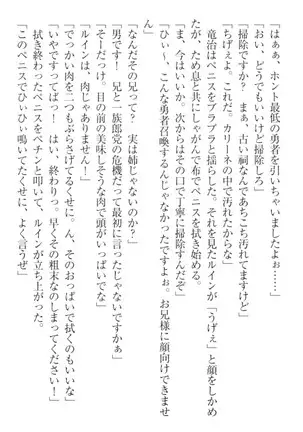 「はぁぁ、ホント最低の勇者を引いちゃいましたよぉ……」
「おい、どうでもいいけど掃除しろ」
「掃除ですか？　まぁ、古い祠なんであちこち汚れてますけど」
「ちげえよ。これだ。カリーネの中で汚れたからな」
　竜治はペニスをブラブラと揺らした。それを見たルインが「うげぇ」と顔をしかめ
が、ため息と共にしゃがんで布でペニスを拭き始める。
「ま、今はいいか。次からはその口で丁寧に掃除すんだぞ」
「ひぃ～、こんな勇者召喚するんじゃなかったですよぉ。お兄様に顔向けできませ
ん」
「なんだその兄って？　実は姉じゃないのか」
「そーだっけ。目の前の美味しそうな肉で頭がいっぱいでな」
「もう！　兄と一族郎党の危機だって最初に言ったじゃないですかぁ」
「ルインは、肉じゃありません！」
「でっかい肉を二つもぶらさげてるくせに。ん、そのおっぱいで拭くのもいいな」
「いやですってば！　はい、終わり。早くその粗末なのしまってください！」
　拭き終わったペニスをペチンと叩いて、ルインが立ち上がった。
「このペニスでひぃひぃ鳴いてたくせに、よく言うぜ」